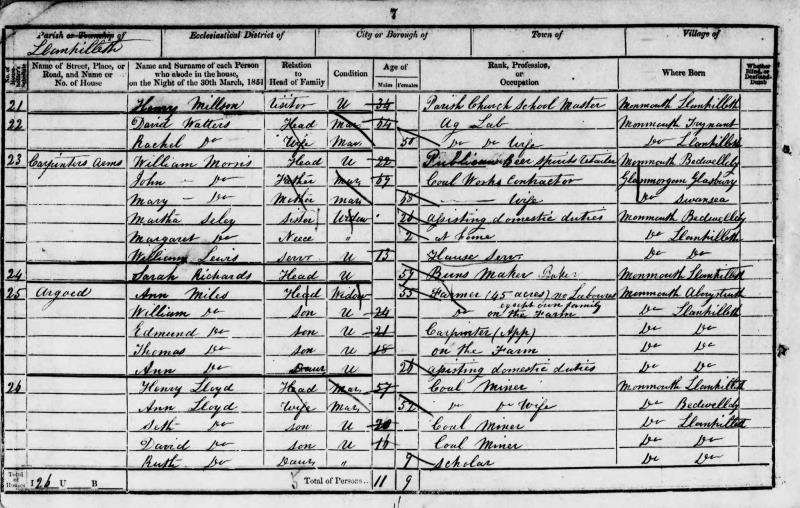 7
Parish or Township of Ecclesiastical District of City or Borough of Town of Village of
Llanhilleth
Name of Street, Place, or Road, and Name or No. of House Name and Surname of each Person who abode in the house, on the Night of the 30th March, 1851 Relation to Head of Family Condition Age of Males Females Rank, Profession, or Occupation Where Born Whether Blind, or Deaf-and-Dumb
21 Henry Millson Visitor U 34 Parish Church School Master Monmouth Llanhilleth
22 David Watters Head Mar 54 Ag Lab Monmouth
Rachel Do Wife Mar 50 Do Do Wife Do Llanhilleth
23 Carpinters Arms William Morris Head U 22 Publican Beer Spirits Retailer Monmouth Bedwellty
John - Do Father Mar 59 Coal Works Contractor Glanmorgan Glasbury
Mary - Do Mother Mar 58 - - Wife Do Swansea
Martha Seley Sister Widow 26 Assisting domestic duties Monmouth Bedwellty
Margaret Do Neece " 2 At home Do Llanhilleth
William Lewis Serv U 13 House Serv Do Do
24 Sarah Richards Head U 59 Buns Maker Baker Monmouth Llanhilleth
25 Argoed Ann Miles Head Widow 55 Farmer (45 acres) no Labourers Monmouth Aberystruth
except own family
William Do son U 24 Do on the Farm Do Llanhilleth
Edmund Do son U 21 Carpinter (App) Do Do
Thomas Do son U 18 on the Farm Do Do
Ann Do Daur U 26 Assisting domestic duties Do Do
26 Henry Lloyd Head Mar 57 Coal Miner Monmouth Llanhilleth
Ann Lloyd Wife Mar 52 Do Do Wife Do Bedwellty
Seth Do son U 20 Coal Miner Do Llanhilleth
David Do son U 16 Coal Miner Do Do
Ruth Do Daur " 9 Scholar Do Do
Total of Houses I 26 U B Total of Persons 11 9